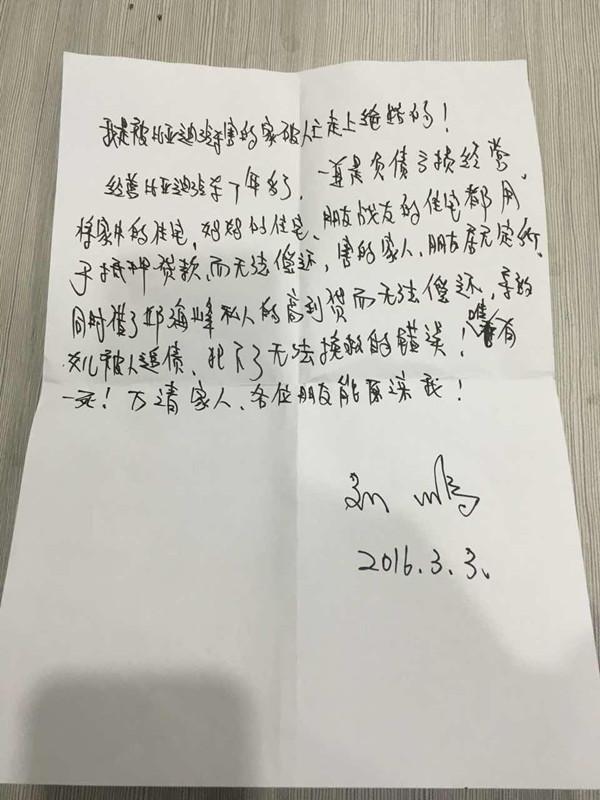 我是被比亚迪汽车害的家破人亡走上绝路的！
经营比亚迪汽车十年多了，一直是负债亏损经营，
将家中的住宅，妈妈的住宅、朋友战友的住宅都用
于抵押贷款，而无法偿还，害的家人、朋友居无定所，
同时借了邓海峰私人的高利贷而无法偿还，导致
女儿被人追债，犯下了无法挽救的错误！唯有
一死！万请家人、各位朋友能原谅我！
2016.3.3.